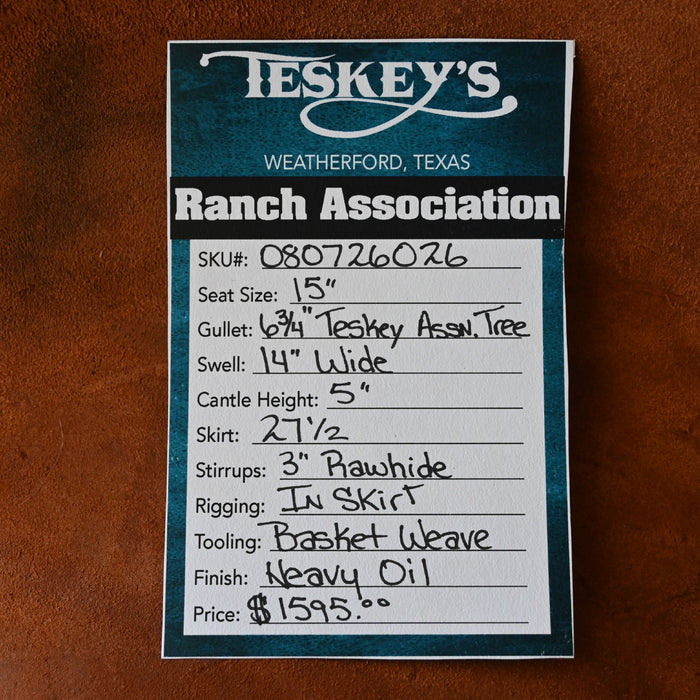 TESKEY'S
WEATHERFORD, TEXAS
Ranch Association
SKU#: 080726026
Seat Size: 15"
Gullet: 6 3/4" Teskey Assn. Tree
Swell: 14" Wide
Cantle Height: 5"
Skirt: 27 1/2
Stirrups: 3" Rawhide
Rigging: In Skirt
Tooling: Basket Weave
Finish: Heavy Oil
Price: $1595.00